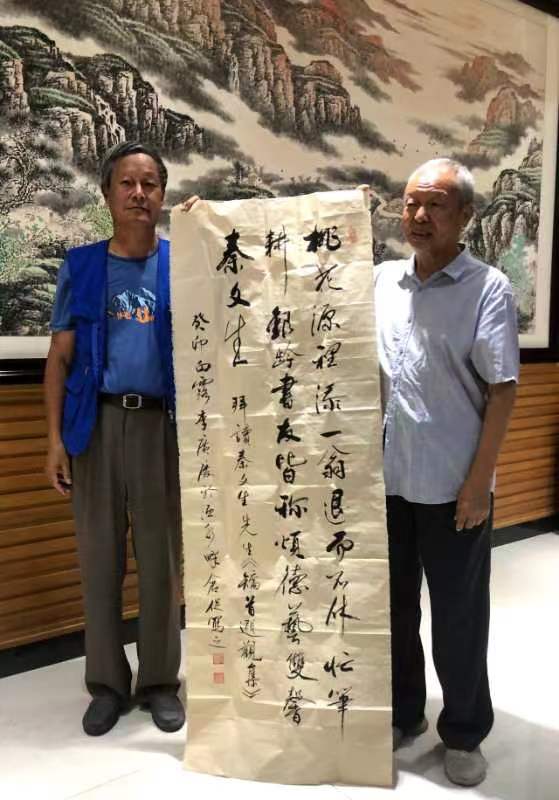 桃花源裡添一翁退而不休忙筆
耕銀齡書友皆称頌德藝雙馨
秦文生
拜讀秦文生先生《矯首遐觀集》
癸卯白露李 畔倉促寫之